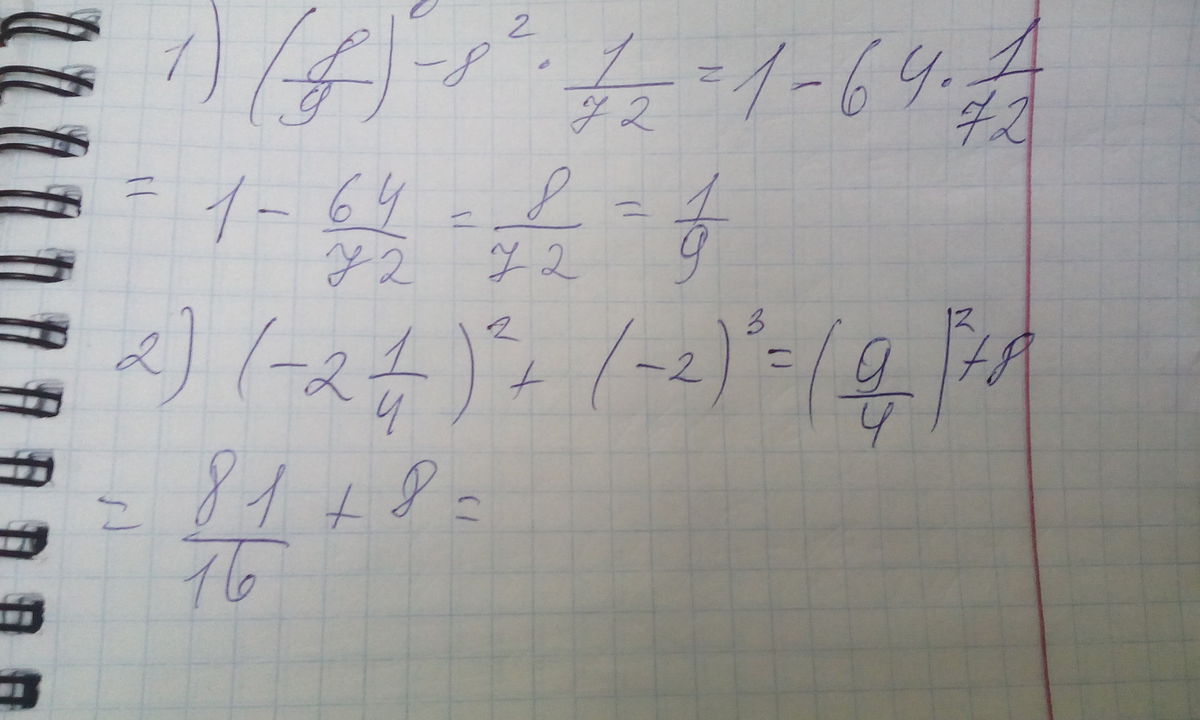 1) (8/9)⁰ - 8² · 1/72 = 1 - 64 · 1/72
= 1 - 64/72 = 8/72 = 1/9
2) (-2 1/4)² + (-2)³ = (9/4)² + 8
= 81/16 + 8 =